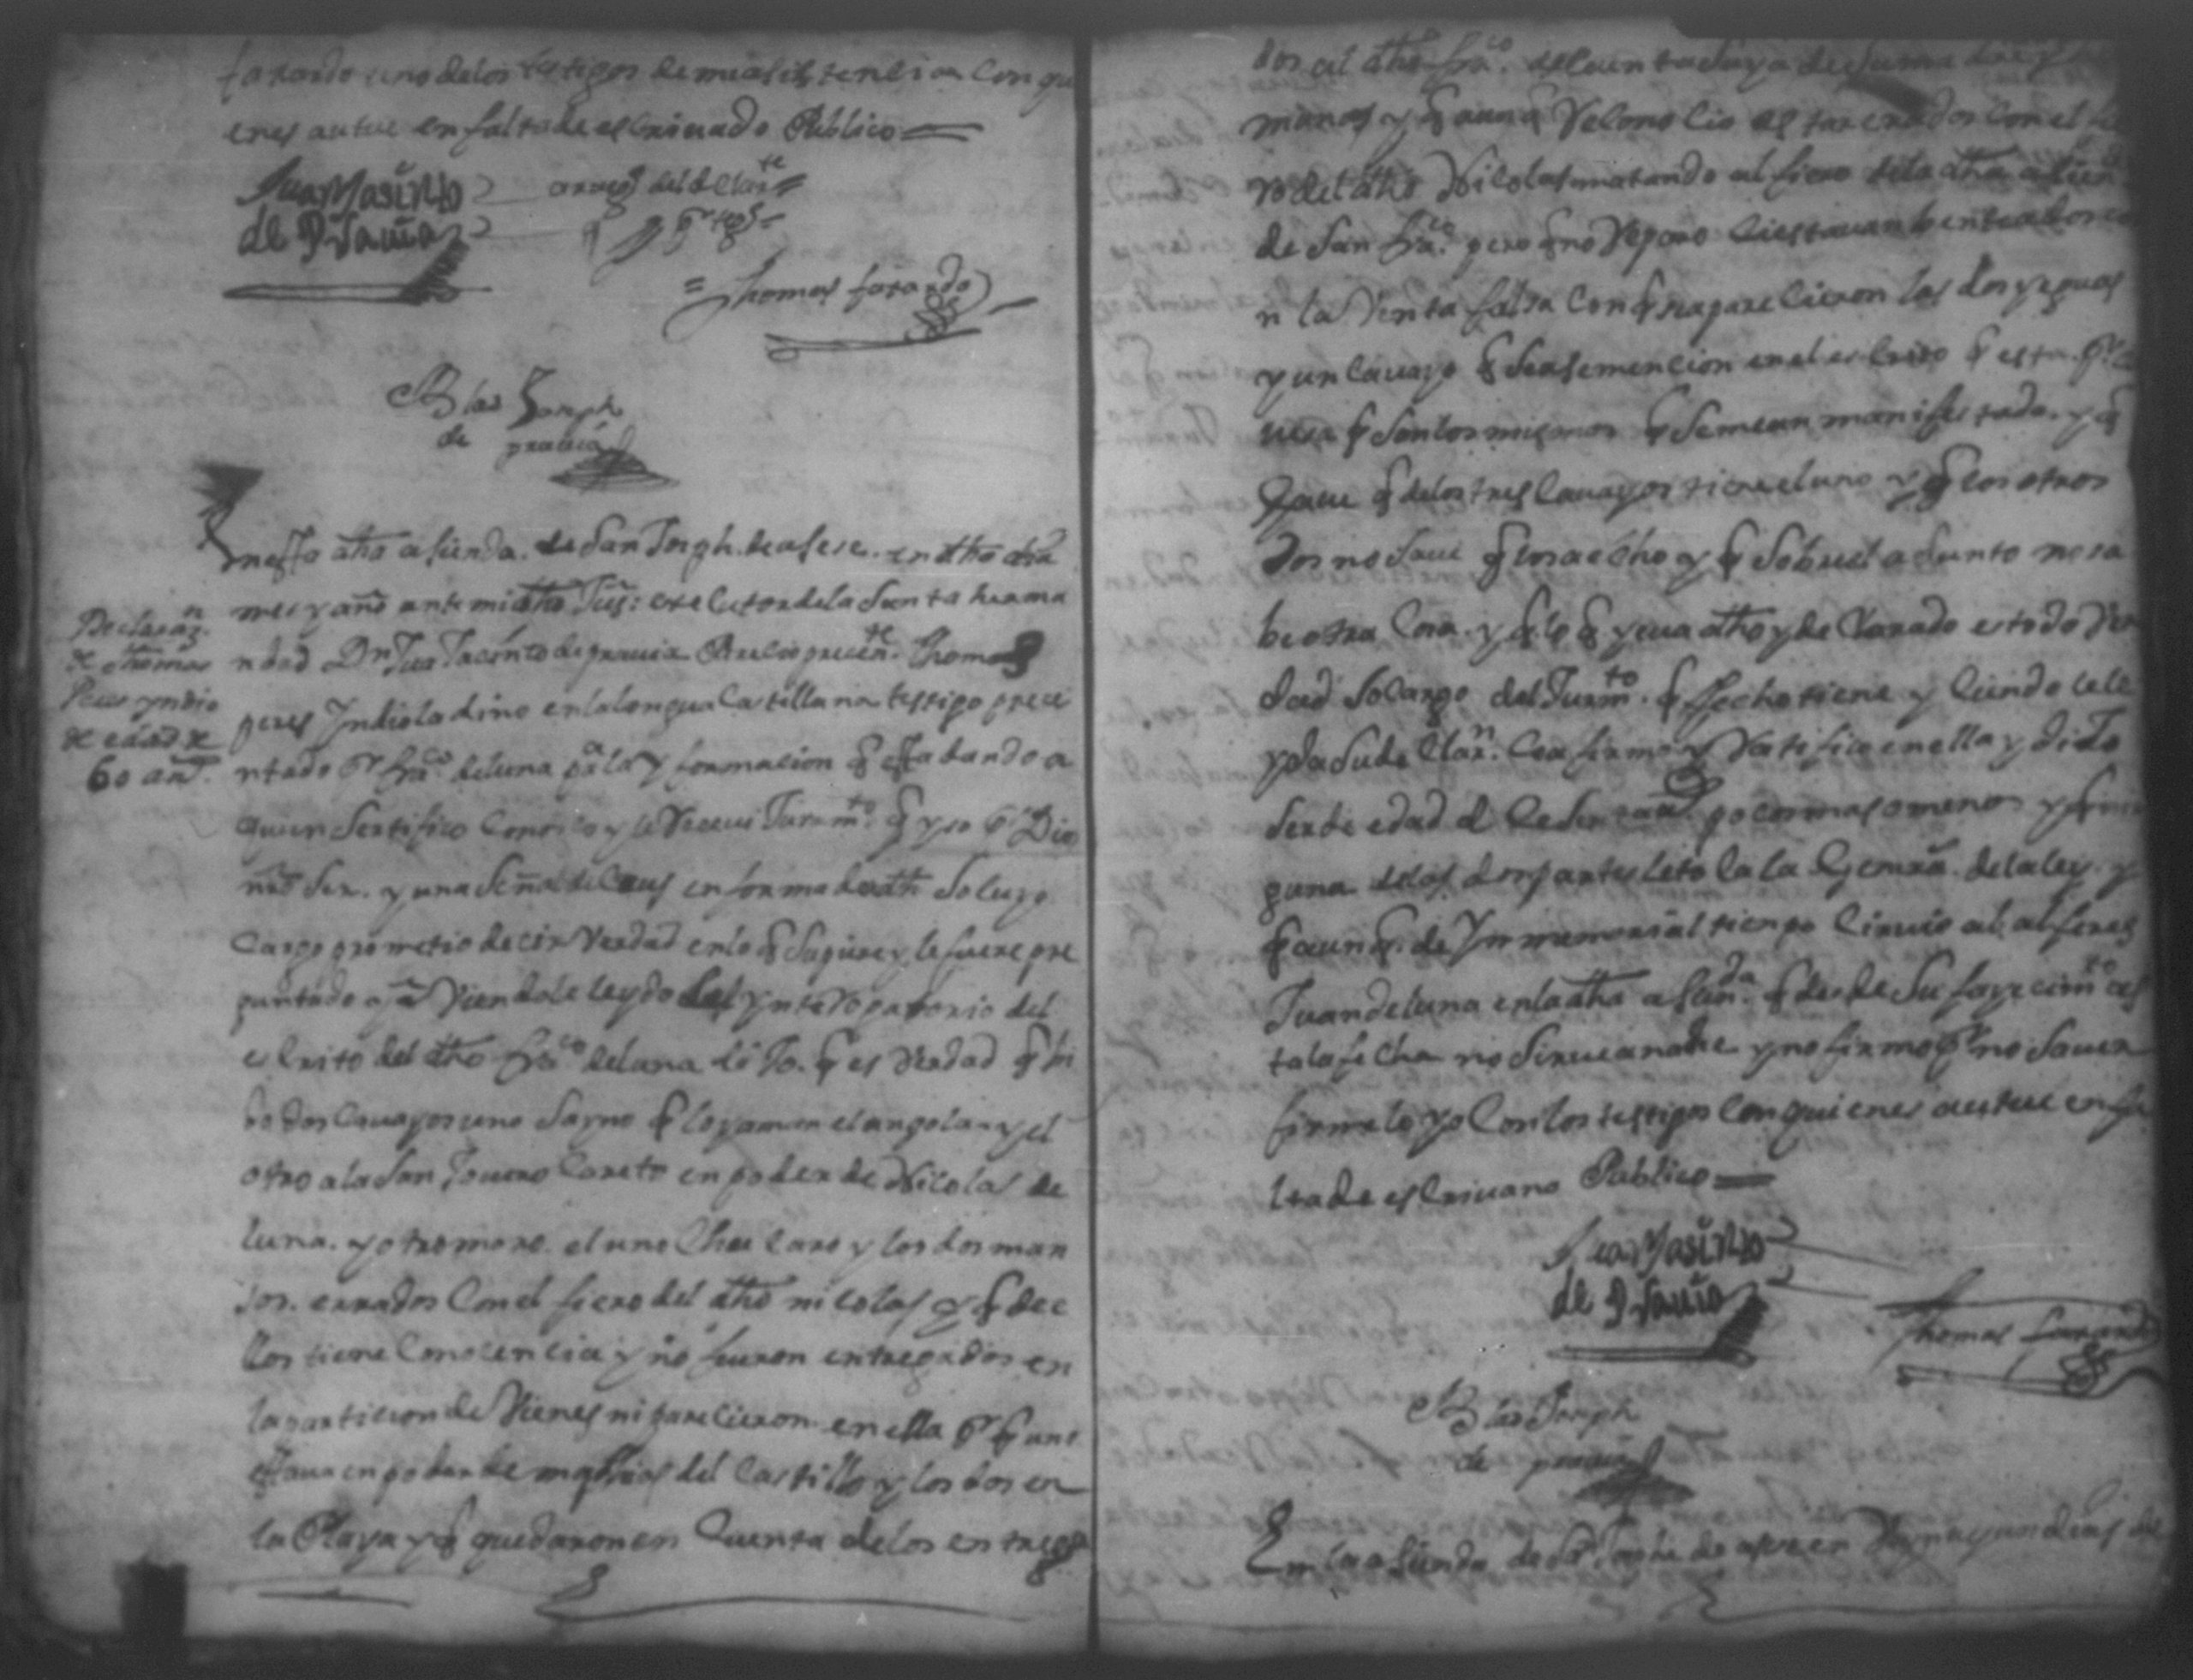 faxardo uno de los testigos de mi asistencia con qu
enes autue en falta de escriuado Publico
Juan Jasinto
de Prauia
a ruego del declar.te
Thomas faxardo
Blas Joseph
de prauia
En esta dha asienda de San Joseph de asese en dho dia
mes y año ante mi dho Jues executor de la Santa herma
ndad Dn Jua Jacinto de prauia Thomas
peres Yndio ladino en la lengua Castillana testigo prece
ntado pr Fran.co de luna pa la Ynformacion q esta dando a
quien Sertifico Conosco y le Receui Juram.to q yso pr Dio
nro Ser. y una Señal de Crus en forma de dro So cuyo
Cargo prometio decir Verdad en lo q Supiere y le fuere pre
guntado y a Viendole leydo el ynteRogatorio del
escrito del dho Fran.co de luna dijo q es Verdad q bi
do dos Cauayos uno Sayno q lo yaman el angola y el
otro alasan Careto en poder de Nicolas de
luna. y otro moro el uno Chucaro y los dos man
sos. errados Con el fiero del dho nicolas y q de e
llos tiene Conosencia y no fueron entregados en
la particion de Vienes ni parecieron en ella pr q uno
estaua en poder de mathias del Castillo y los dos en
la Playa y q quedaron en Cuenta de los entrega
Declaraz.n
de thomas
Peres yndio
de edad de
60 añs.
dos al dho Fran.co de Cuenta Suya de Su madre y
manos y q aunq Reconocio estar errados Con el fie
ro del dho Nicolas matando al fiero de la dha asien
de San Fran.co pero q no Reparo Ci estauan benteados co
n la Venta falsa Con q reaparecieron las dos yeguas
y un Cauayo q Se ase mencion en el escrito q esta
q Son los mismos q Se me an manifestado. y q
Saue q de los tres Cauayos tiene el uno y q los otros
dos no Saue q los a echo y q Sobre el asunto no sa
be otra Cosa. y q lo q yeua dho y deClarado es todo Ver
dad So Cargo del Juram.to q ffecho tiene y Ciendole le
yda Su de Clar.n Cea firmo y Ratifico en ella y dijo
Ser de edad de Cesenta años poco mas o menos y q nin
guna de las dos partes le toCa la Gener.a de la ley y
q aunq de Ynmemorial tiempo Ciruio al alferes
Juan de luna en la dha asien.da q desde Su fayecim.to as
ta la fecha no Sirue a nadie y no firmo pr no Sauer
firmelo yo Con los testigos Con quienes autue en fa
lta de escriuano Publico
Juan Jasinto
de Prauia
Thomas faxardo
Blas Joseph
de prauia
En la asienda de Sn Joseph de asese en Veynte y un dias de